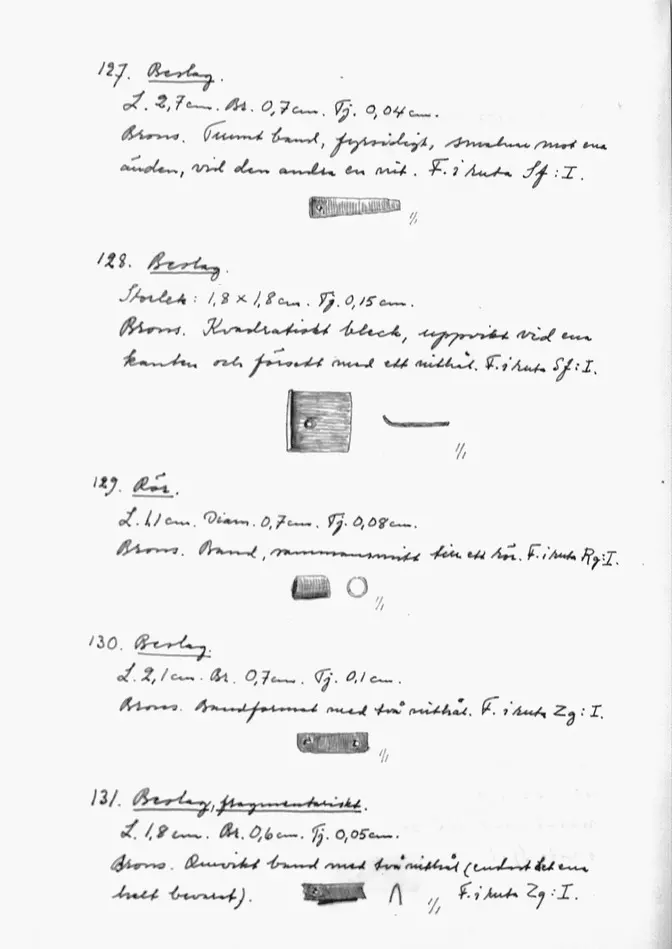 127. Beslag.
L. 2,7 cm. Br. 0,7 cm. Tj. 0,04 cm.
Brons. Tunnt band, fyrsidigt, smalnar mot ena
änden, vid den andra en nit. F. i ruta Sf: I.
1/1
128. Beslag.
Storlek: 1,8 × 1,8 cm. Tj. 0,15 cm.
Brons. Kvadratiskt bleck, uppvikt vid ena
kanten och försett med ett nithål. F. i ruta Sf: I.
1/1
129. Rör.
L. 1,1 cm. Diam. 0,7 cm. Tj. 0,08 cm.
Brons. Band, till ett rör. F. i ruta Rg: I.
1/1
130. Beslag.
L. 2,1 cm. Br. 0,7 cm. Tj. 0,1 cm.
Brons. Bandformat med två nithål. F. i ruta Zg: I.
1/1
131. Beslag, fragmentariskt.
L. 1,8 cm. Br. 0,6 cm. Tj. 0,05 cm.
Brons. Omvikt band med två nithål (endast det ena
helt bevarat). 1/1 F. i ruta Zg: I.